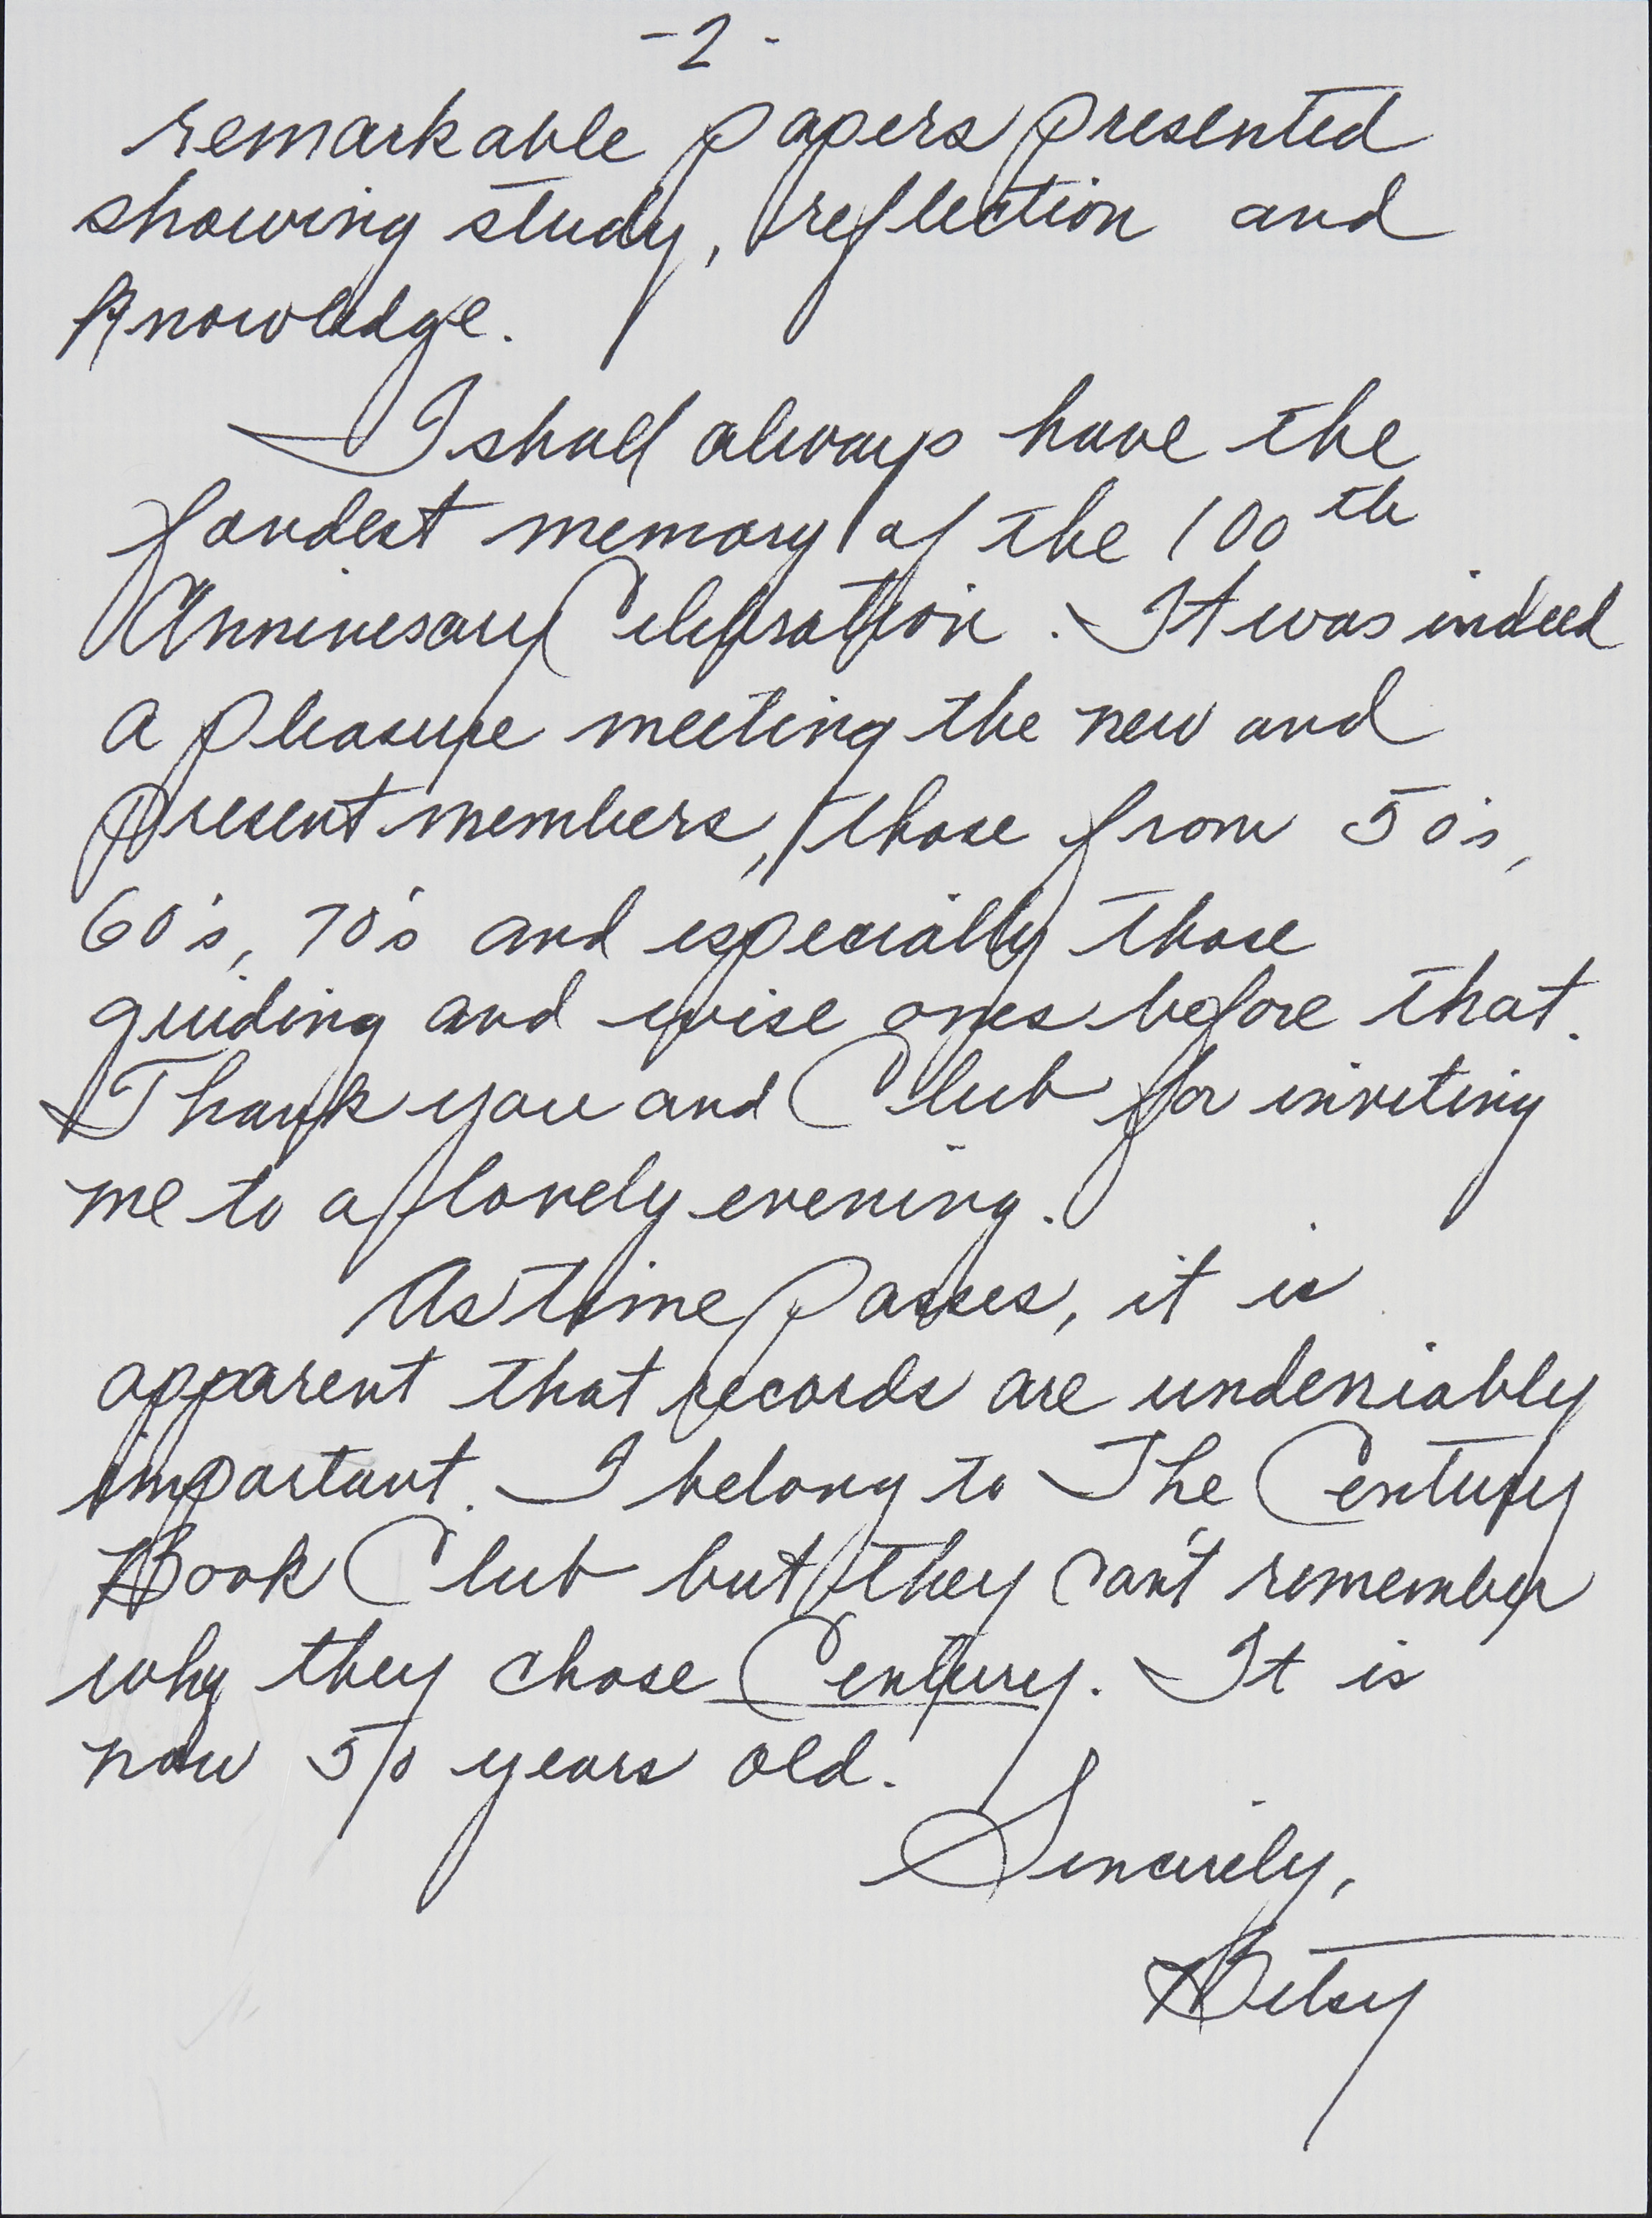 -2-
remarkable papers presented
showing study, reflection and
Knowledge.
I shall always have the
fondest memory of the 100th
Annivesary Celebration. It was indeed
a pleasure meeting the new and
present members, those from 50's,
60's, 70's and especially those
guiding and wise ones before that.
Thank you and Club for inviting
me to a lovely evening.
As time passes, it is
apparent that records are undeniably
important. I belong to The Century
Book Club but they can't remember
why they chose Century. It is
now 50 years old.
Sincerely,
Betsy